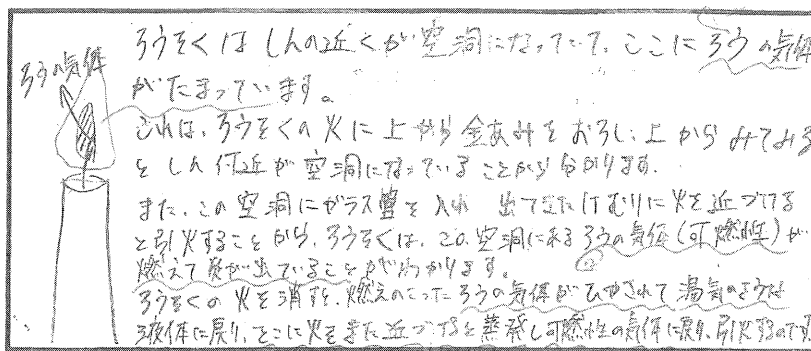 ろうの気体
ろうそくはしんの近くが空洞になっていて、ここにろうの気体
がたまっています。
これは、ろうそくの火に上から金あみをおろし、上からみてみる
としん付近が空洞になっていることから分かります。
また、この空洞にガラス管を入れ 出てきたけむりに火を近づける
と引火することから、ろうそくは、この空洞にあるろうの気体(可燃性)が
燃えて炎が出ていることがわかります。
ろうそくの火を消すと、燃えのこったろうの気体がひやされて湯気のような
液体に戻り、そこに火をまた近づけると蒸発し可燃性の気体に戻り、引火するのです